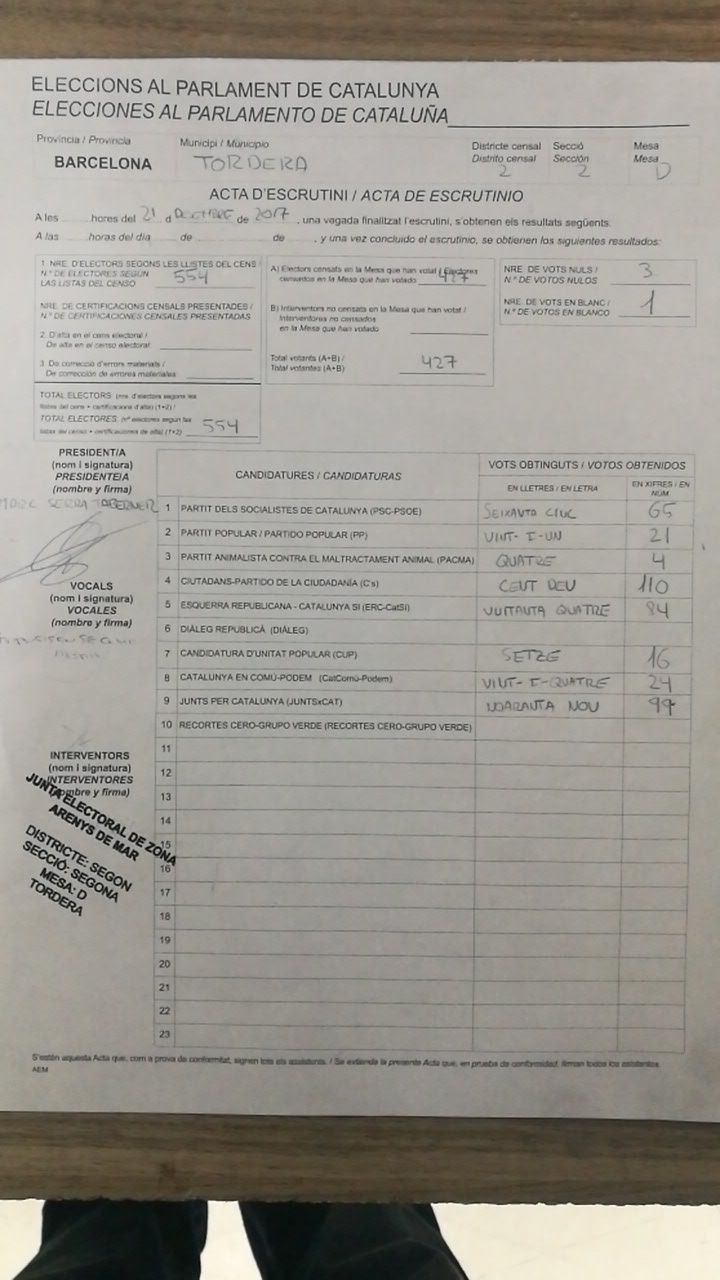 ELECCIONS AL PARLAMENT DE CATALUNYA
ELECCIONES AL PARLAMENTO DE CATALUÑA
Província / Provincia Municipi / Municipio Districte censal Secció Mesa
BARCELONA TORDERA Distrito censal Sección Mesa
2 2 D
ACTA D'ESCRUTINI / ACTA DE ESCRUTINIO
A les hores del 21 d DECEMBRE de 2017, una vegada finalitzat l'escrutini, s'obtenen els resultats següents:
A las horas del día de de , y una vez concluido el escrutinio, se obtienen los siguientes resultados:
1. NRE. D'ELECTORS SEGONS LES LLISTES DEL CENS /
N.º DE ELECTORES SEGÚN
LAS LISTAS DEL CENSO 554
NRE. DE CERTIFICACIONS CENSALS PRESENTADES /
N.º DE CERTIFICACIONES CENSALES PRESENTADAS
2. D'alta en el cens electoral /
De alta en el censo electoral:
3. De correcció d'errors materials /
De corrección de errores materiales:
TOTAL ELECTORS (nre. d'electors segons les
llistes del cens + certificacions d'alta) (1+2) /
TOTAL ELECTORES (nº electores según las
listas del censo + certificaciones de alta) (1+2) 554
A) Electors censats en la Mesa que han votat / Electores
censados en la Mesa que han votado 427
B) Interventors no censats en la Mesa que han votat /
Interventores no censados
en la Mesa que han votado
Total votants (A+B) /
Total votantes (A+B) 427
NRE. DE VOTS NULS / 3
N.º DE VOTOS NULOS
NRE. DE VOTS EN BLANC / 1
N.º DE VOTOS EN BLANCO
PRESIDENT/A
(nom i signatura)
PRESIDENTE/A
(nombre y firma)
MARC SERRA TABERNER
VOCALS
(nom i signatura)
VOCALES
(nombre y firma)
INTERVENTORS
(nom i signatura)
INTERVENTORES
(nombre y firma)
JUNTA ELECTORAL DE ZONA
ARENYS DE MAR
DISTRICTE: SEGON
SECCIÓ: SEGONA
MESA: D
TORDERA
CANDIDATURES / CANDIDATURAS VOTS OBTINGUTS / VOTOS OBTENIDOS
EN LLETRES / EN LETRA EN XIFRES / EN NÚM
1 PARTIT DELS SOCIALISTES DE CATALUNYA (PSC-PSOE) SEIXANTA CINC 65
2 PARTIT POPULAR / PARTIDO POPULAR (PP) VINT-I-UN 21
3 PARTIT ANIMALISTA CONTRA EL MALTRACTAMENT ANIMAL (PACMA) QUATRE 4
4 CIUTADANS-PARTIDO DE LA CIUDADANÍA (C's) CENT DEU 110
5 ESQUERRA REPUBLICANA - CATALUNYA SI (ERC-CatSí) VUITANTA QUATRE 84
6 DIÀLEG REPUBLICÀ (DIÀLEG)
7 CANDIDATURA D'UNITAT POPULAR (CUP) SETZE 16
8 CATALUNYA EN COMÚ-PODEM (CatComú-Podem) VINT-I-QUATRE 24
9 JUNTS PER CATALUNYA (JUNTSxCAT) NORANTA NOU 99
10 RECORTES CERO-GRUPO VERDE (RECORTES CERO-GRUPO VERDE)
11
12
13
14
15
16
17
18
19
20
21
22
23
S'estén aquesta Acta que, com a prova de conformitat, signen tots els assistents. / Se extiende la presente Acta que, en prueba de conformidad, firman todos los asistentes.
AEM